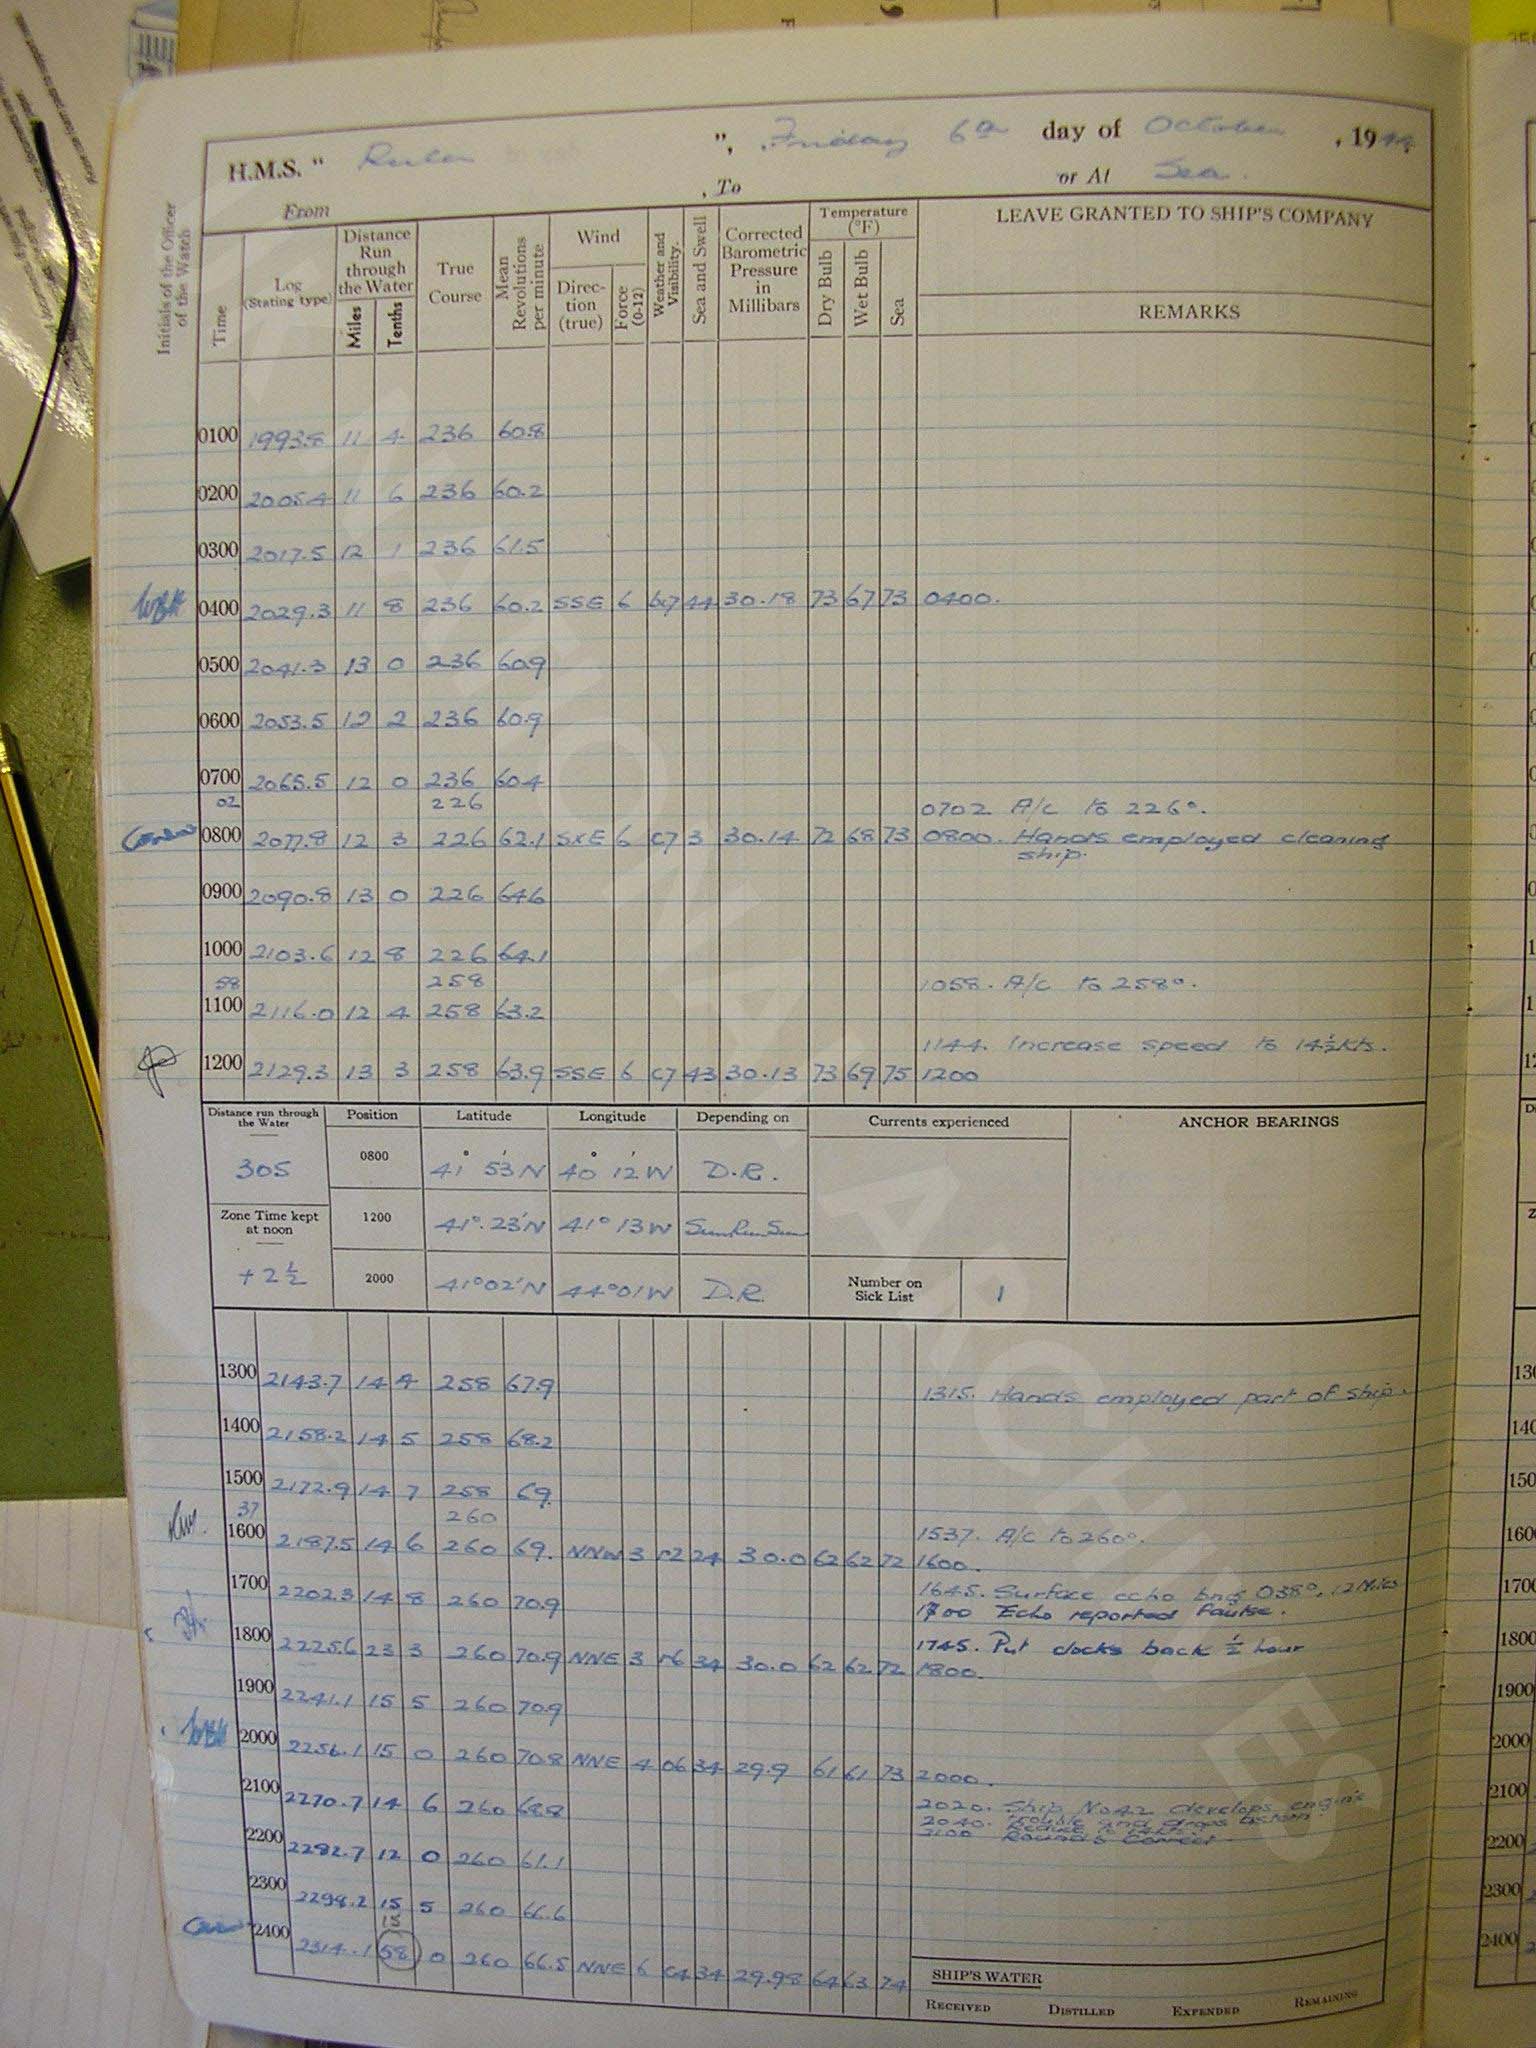 H.M.S. " Ruler ", Friday 6th day of October, 1944
From , To or At Sea.
Initials of the Officer of the Watch
Time
Log (Stating type)
Distance Run through the Water
Miles
Tenths
True Course
Mean Revolutions per minute
Wind
Direction (true)
Force (0-12)
Weather and Visibility.
Sea and Swell
Corrected Barometric Pressure in Millibars
Temperature (°F)
Dry Bulb
Wet Bulb
Sea
LEAVE GRANTED TO SHIP'S COMPANY
REMARKS
0100 1993.8 11 4 236 60.8
0200 2005.4 11 6 236 60.2
0300 2017.5 12 1 236 61.5
WBH 0400 2029.3 11 8 236 60.2 SSE 6 bc7 44 30.18 73 67 73 0400.
0500 2041.3 13 0 236 60.9
0600 2053.5 12 2 236 60.9
0700 2065.5 12 0 236 60.4
02 226 0702 A/c to 226°.
0800 2077.8 12 3 226 62.1 SXE 6 c7 3 30.14 72 68 73 0800. Hands employed cleaning
ship.
0900 2090.8 13 0 226 64.6
1000 2103.6 12 8 226 64.1
58 258 1058. A/c to 258°.
1100 2116.0 12 4 258 63.2
1144. Increase speed to 14½kts.
1200 2129.3 13 3 258 63.9 SSE 6 c7 43 30.13 73 69 75 1200
Distance run through the Water
305
Zone Time kept at noon
+ 2½
Position Latitude Longitude Depending on
0800 41° 53'N 40° 12'W D.R.
1200 41°.23'N 41° 13W Sun Run Sun
2000 41°02'N 44°01W D.R.
Currents experienced
Number on Sick List 1
ANCHOR BEARINGS
1300 2143.7 14 4 258 67.9
1315. Hands employed part of ship.
1400 2158.2 14 5 258 68.2
1500 2172.9 14 7 258 69.
37 260 1537. A/c to 260°.
1600 2187.5 14 6 260 69. NNW 3 r2 24 30.0 62 62 72 1600.
1645. Surface echo bng 038°. 12 Miles
1700 2202.3 14 8 260 70.9 1700 Echo reported faulse.
1745. Put clocks back ½ hour
1800 2225.6 23 3 260 70.9 NNE 3 r6 34 30.0 62 62 72 1800.
1900 2241.1 15 5 260 70.9
WBH 2000 2256.1 15 0 260 70.8 NNE 4 06 34 29.9 61 61 73 2000.
2020. Ship No42 develops engine
trouble and drops astern.
2100 2270.7 14 6 260 68.8
2040. Reduce to 14kts.
2100 Rounds Correct
2200 2282.7 12 0 260 61.1
2300 2298.2 15 5 260 66.6
15
2400 2314.1 58 0 260 66.5 NNE 6 c4 34 29.98 64 63 74
SHIP'S WATER
RECEIVED DISTILLED EXPENDED REMAINING
NATIONAL ARCHIVES